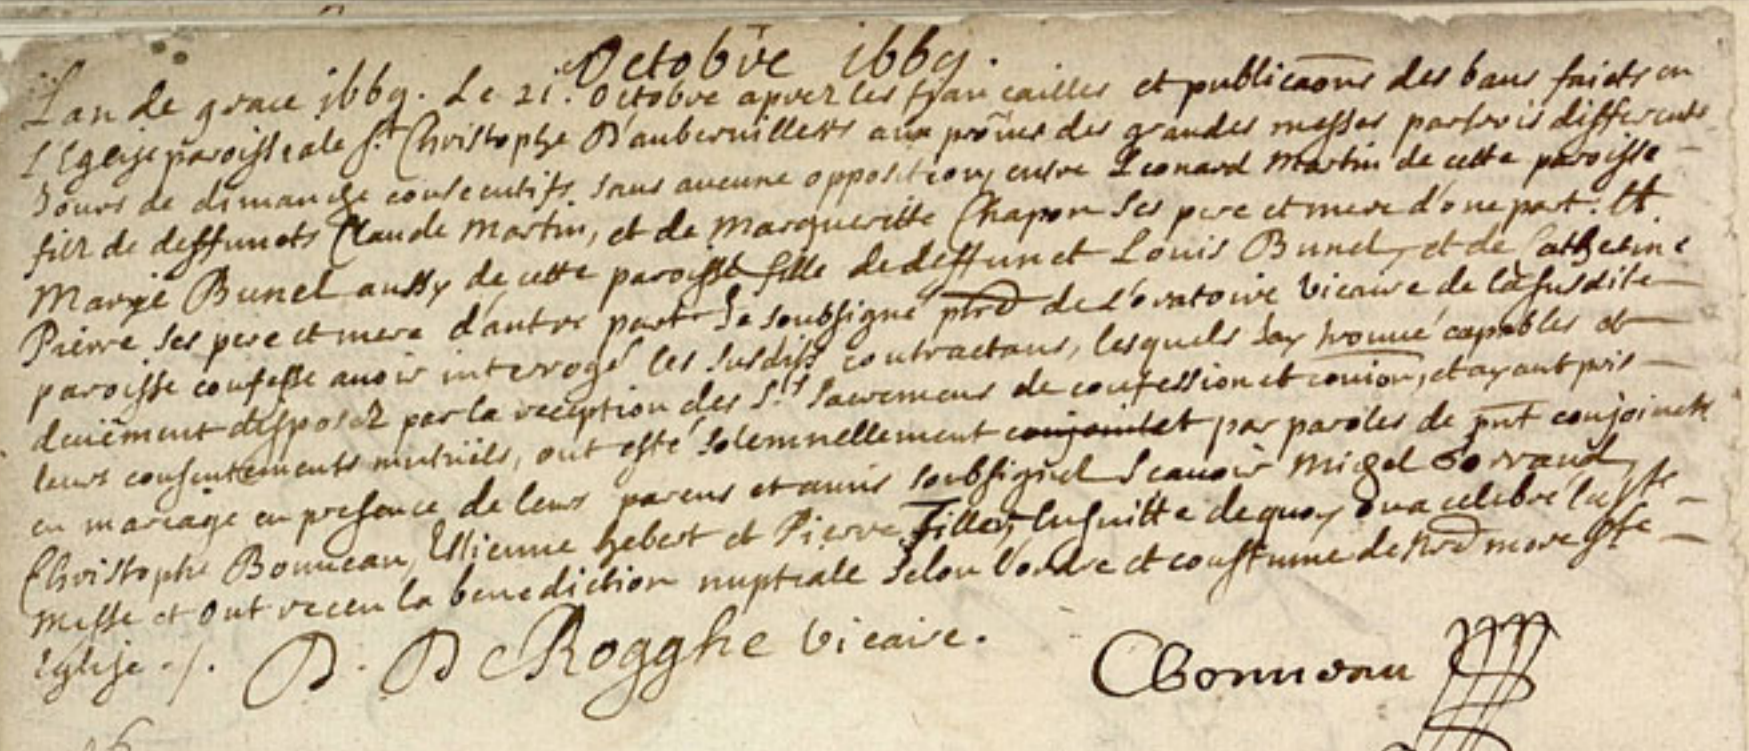 Octobre 1669.
L'an de grace 1669. Le 21. Octobre aprez les fiancailles et publicaons des bans faicts en
l'Eglise paroissiale St. Christophe D'auberuilliers aux prônes des grandes messes par trois differents
Jours de dimanche consecutifs sans aucune opposition, entre Leonard Martin de cette paroisse
filz de deffuncts Claude Martin, et de Margueritte Chapon ses pere et mere d'une part. Et
Marye Bunel aussy de cette paroisse fille de deffunct Louis Bunel, et de Catherine
Pierre ses pere et mere d'autre part Je soubsigné pbre de L'oratoire vicaire de la susdite
paroisse confesse auoir interrogé les susdits contractans, lesquels Jay trouué capables et
deuëment disposéz par la reception des Sts. Sacremens de confession et coñion, et ayant pris
leurs consentements mutuels, ont esté solemnellement conjoinctet par paroles de pnt conjoincts
en mariage en presence de leurs parens et amis soubsignéz Scauoir Michel
Christophe Bonneau, Estienne hebert et Pierre Filler, ensuitte dequoy on a celebré la ste
messe et ont receu la benediction nuptiale selon l'ordre et coustume de nre mere ste
Eglise ./.
D. De Rogghe vicaire.
CBonneau